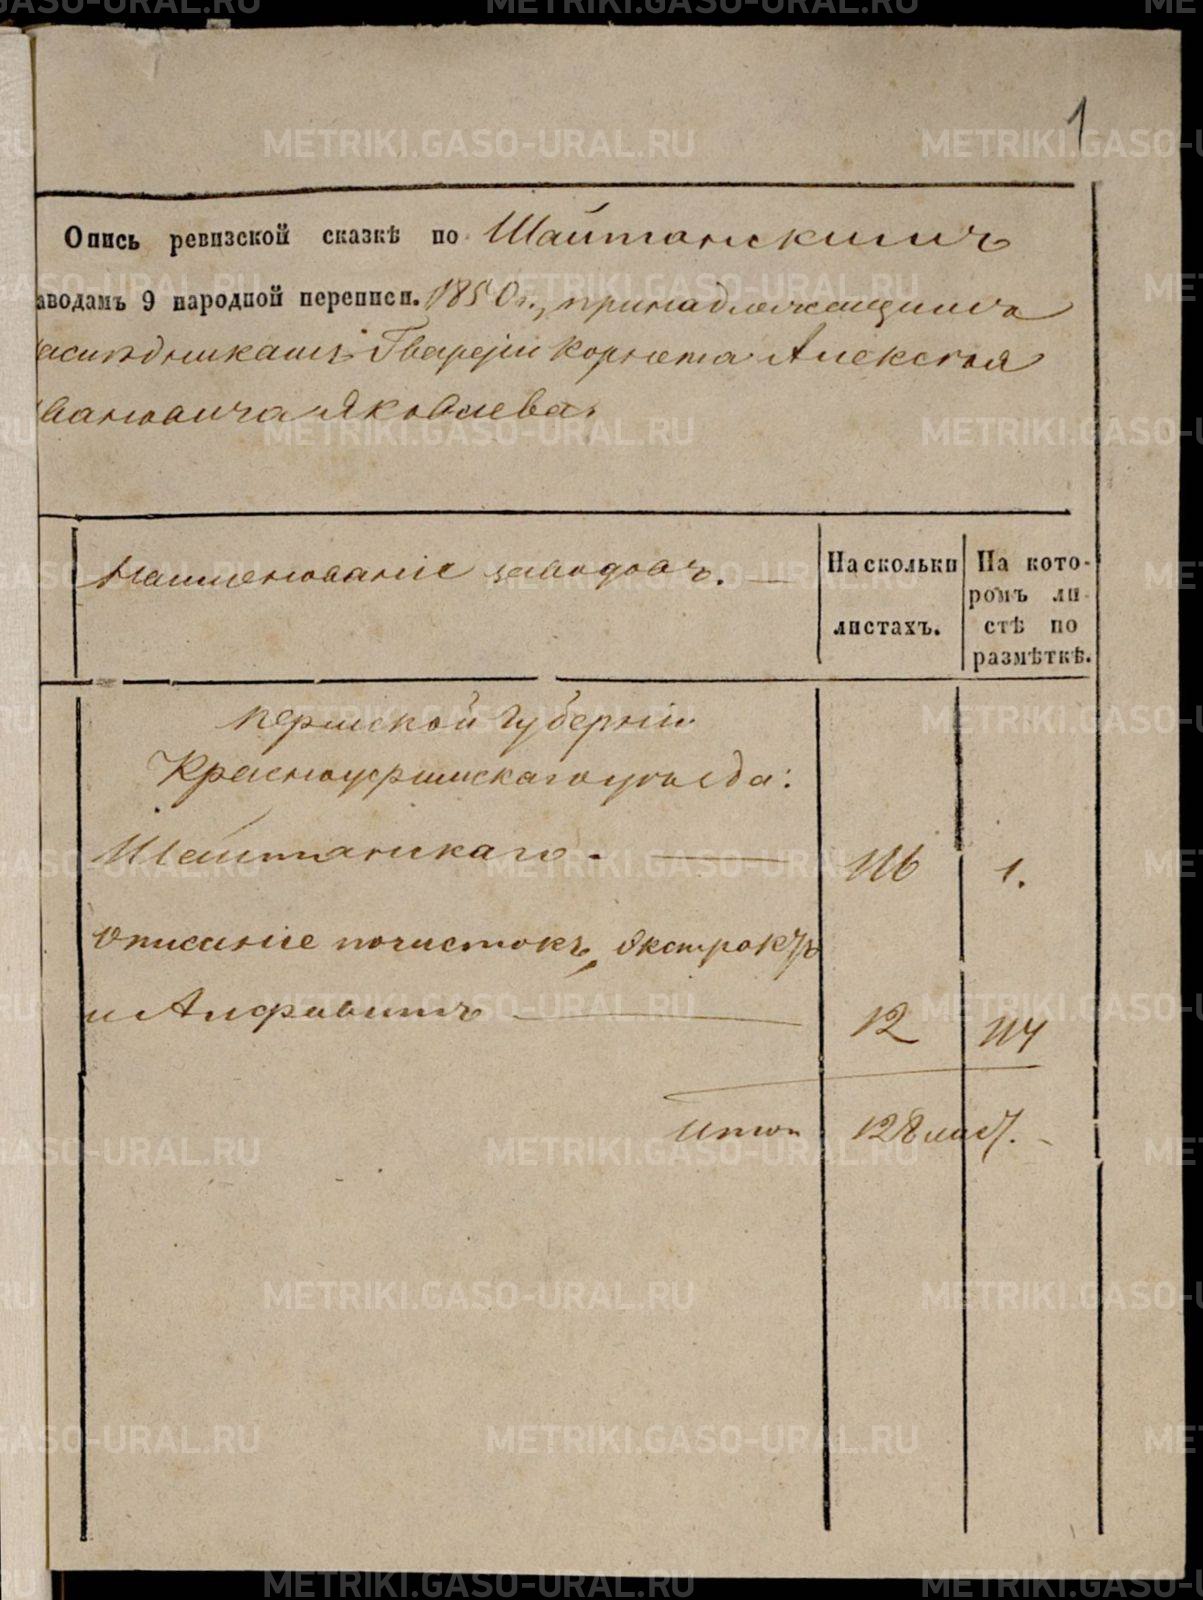 1
Опись ревизской сказкѣ по Шайтанскимъ
аводамъ 9 народной переписи. 1850 г., принадлежащимъ
аслѣдникамъ Гвардіи Корнета Алексѣя
вановича Яковлева.
Наименованіе заводовъ.
На скольки листахъ.
На кото-
ромъ ли-
стѣ по
размѣткѣ.
Пермской Губерніи
Красноуфимскаго уѣзда:
Шайтанскаго. 116 1.
Описаніе почистокъ, экстрактъ
и Алфавитъ 12 114
Итого 128 лист.
METRIKI.GASO-URAL.RU